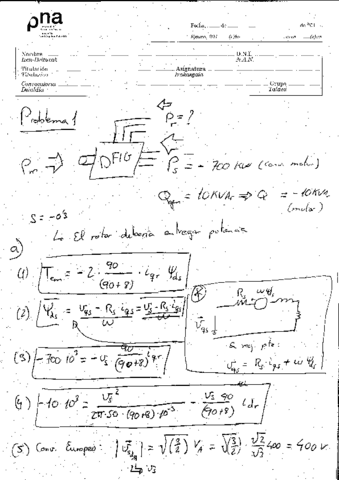 pna
Fecha, de de 201
Nombre
Izen-Deiturak
D.N.I.
N.A.N.
Titulación
Titulazioa
Asignatura
Irakasgaia
Convocatoria
Deialdia
Grupo
Taldea
Problema 1
Pr = ?
Pm ⇒ DFIG
Ps = - 700 kW (conv. motor)
Qgen = 10 KVAr ⇒ Q = -10 KVAr
(motor)
S = -0'3
↳ El rotor debería entregar potencia
a)
(1) Tem = -2 · 90/(90+8) · iqr ψds
(2) ψds = (vqs - Rs iqs)/w = (vs - Rs iqs)/w
Rs wψds
vqs
vqs = Rs · iqs + w ψds
(3) -700·10³ = -vs 90/(90+8) iqr
(4) -10·10³ = vs²/(2π·50·(90+8)·10⁻³) - vs 90/(90+8) idr
(5) Conv. Europeo: |vs| = √(3/2) VA = √(3/2) · √2/√3 400 = 400 V